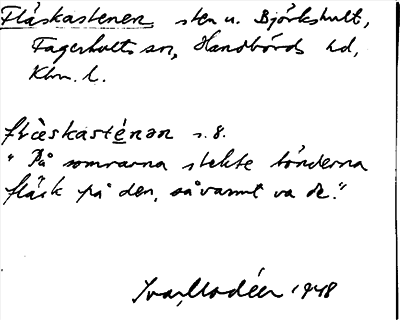 Fläskastenen sten u. Björkshult,
Fagerhults sn, Handbörds hd,
Klm. l.
flɛ̀skasténən s. 8.
"På somrarna stekte bönderna
fläsk på den, så varmt va de."
Ivar Modéer 1948